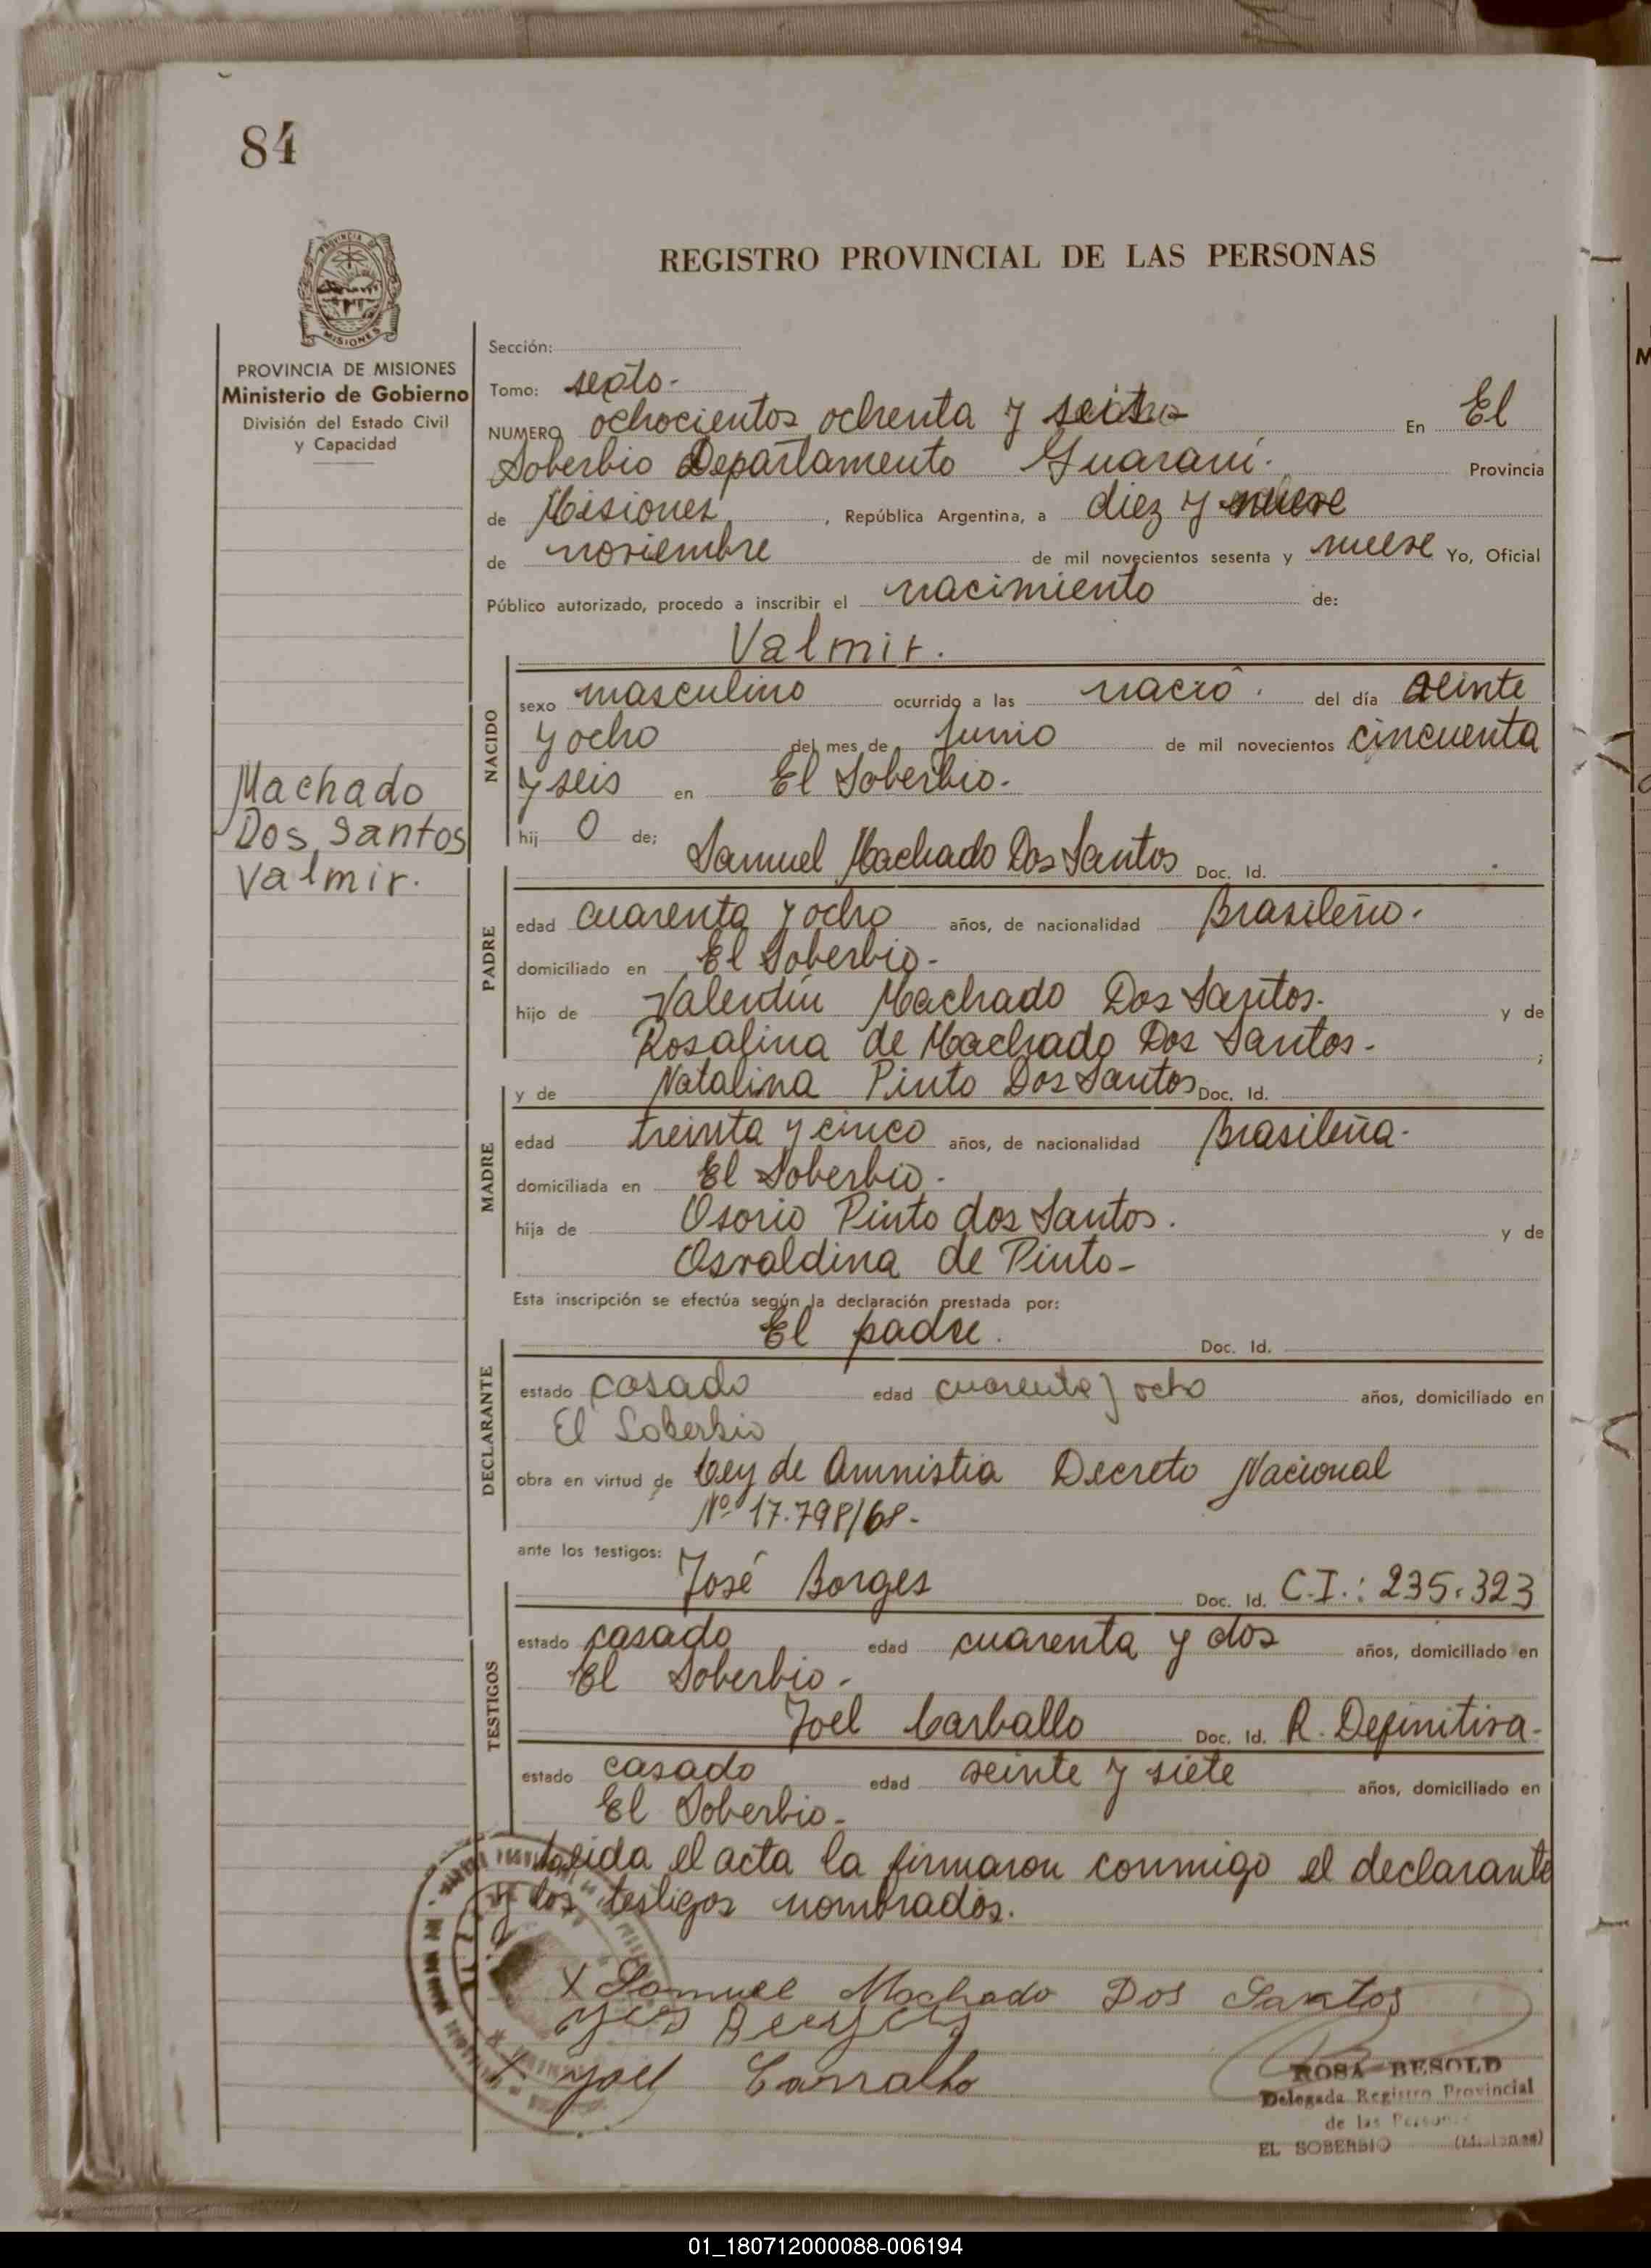 84
PROVINCIA DE
MISIONES
REGISTRO PROVINCIAL DE LAS PERSONAS
PROVINCIA DE MISIONES
Ministerio de Gobierno
División del Estado Civil
y Capacidad
Sección:
Tomo: sexto-
NUMERO ochocientos ochenta y En El
Soberbio Departamento Guaraní. Provincia
de Misiones, República Argentina, a diez y nueve
de noviembre de mil novecientos sesenta y nueve Yo, Oficial
Público autorizado, procedo a inscribir el nacimiento de:
Valmir.
NACIDO
sexo masculino ocurrido a las nació. del día veinte
y ocho del mes de Junio de mil novecientos cincuenta
y seis en El Soberbio-
hij O de;
Machado
Dos Santos
Valmir.
Samuel Machado Dos Santos Doc. Id.
PADRE
edad cuarenta y ocho años, de nacionalidad Brasileño.
domiciliado en El Soberbio-
hijo de Valentín Machado Dos Santos- y de
Rosalina de Machado Dos Santos- ;
y de Natalina Pinto Dos Santos Doc. Id.
MADRE
edad treinta y cinco años, de nacionalidad Brasileña-
domiciliada en El Soberbio-
hija de Osorio Pinto dos Santos. y de
Osvaldina de Pinto-
Esta inscripción se efectúa según la declaración prestada por:
El padre. Doc. Id.
DECLARANTE
estado casado edad cuarenta y ocho años, domiciliado en
El Soberbio
obra en virtud de Ley de Amnistia Decreto Nacional
Nº 17.798/68-
ante los testigos:
José Borges Doc. Id. C.I.: 235.323
TESTIGOS
estado casado edad cuarenta y dos años, domiciliado en
El Soberbio-
Joel Carballo Doc. Id. R. Definitiva-
estado casado edad veinte y siete años, domiciliado en
El Soberbio-
Leida el acta la firmaron conmigo el declarante
y los testigos nombrados.
X Samuel Machado Dos Santos
X Joel Carvalho
ROSA BESOLD
Delegada Registro Provincial
de las Personas
EL SOBERBIO (Misiones)
01_180712000088-006194